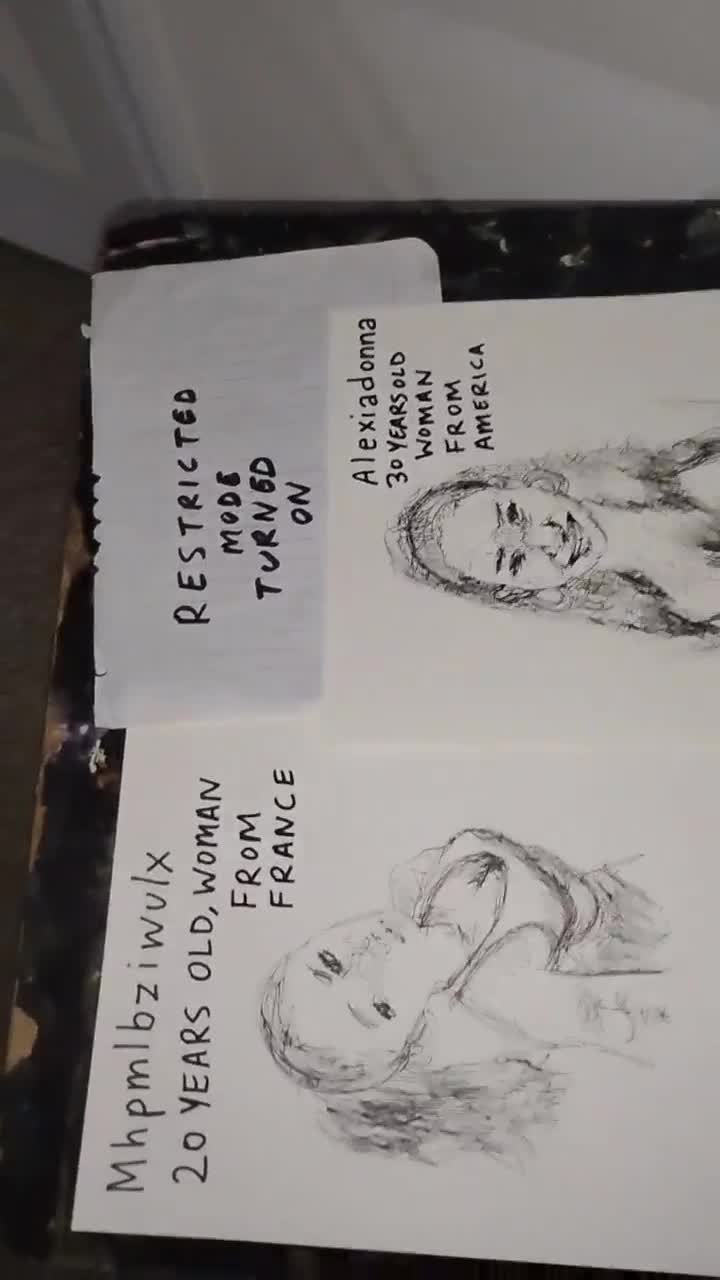 RESTRICTED
MODE
TURNED
ON
Alexiadonna
30 YEARS OLD
WOMAN
FROM
AMERICA
Mhpmlbziwulx
20 YEARS OLD, WOMAN
FROM
FRANCE